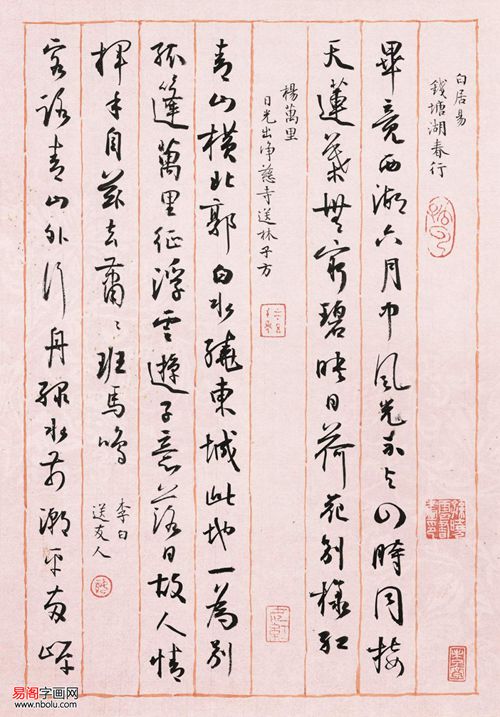 白居易
錢塘湖春行
畢竟西湖六月中風光不与四時同接
天蓮葉無窮碧映日荷花別樣紅
楊萬里
日光出净慈寺送林子方
青山橫北郭白水繞東城此地一為別
孤篷萬里征浮雲遊子意落日故人情
揮手自茲去蕭〻班馬鳴
李白
送友人
客路青山外行舟綠水前潮平兩岸
易阁字画网
www.nbolu.com